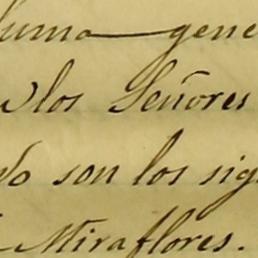 suma gene
los Señores
son los sig
Miraflores.